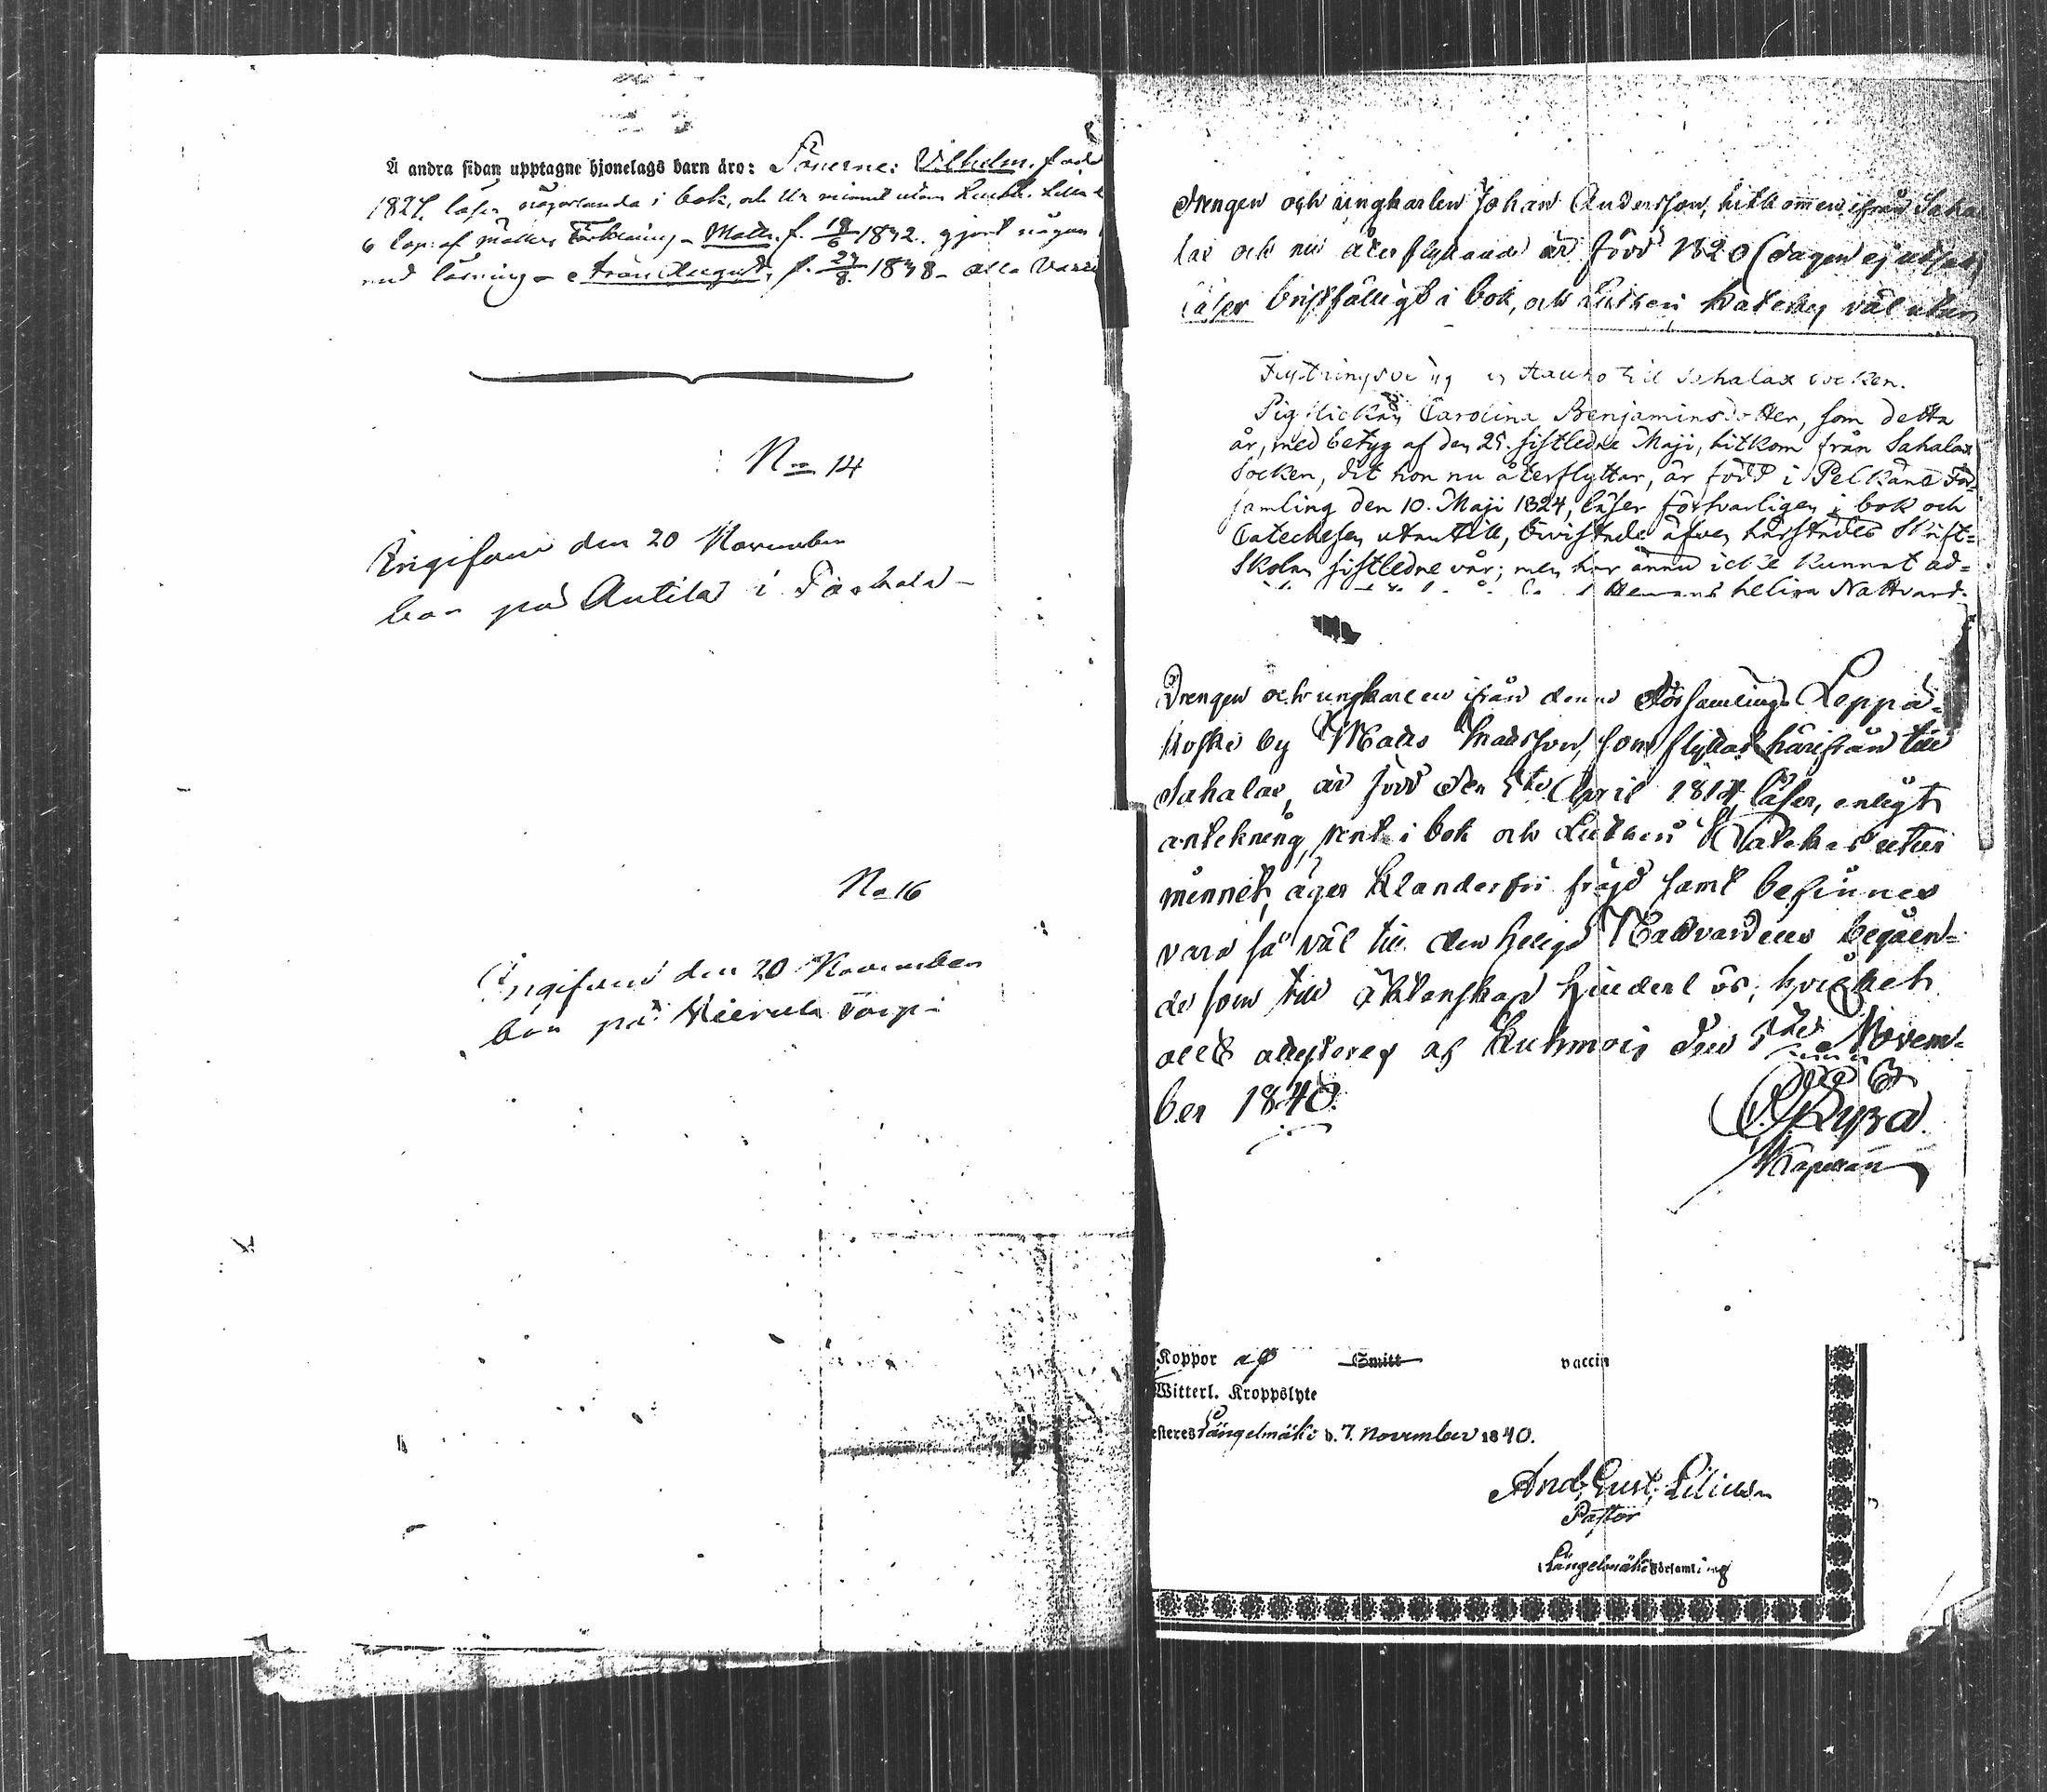 Å andra sidan upptagne hjonelags barn äro: Sönerne: Vilhelm, född
1827. läser någorlunda i bok, och ur minnet utan Luth. Lilla
6 Cap: af Möllers Förklaring - Matts f. 19/6 1832. gjort någon
med läsning - Frans August, f. 27/8 1838 - alla
No 14
Angifven den 20 November
bor på Antila i
No 16
Angifven den 20 November
bor på Torp
Drengen och ungkarlen Johan Andersson, hitkommen ifrån Saha
lax och nu återflyttande är född 1820 (dagen ej
läser bristfälligt i bok, och Lutheri Kateches väl utan
Flyttningsbetyg Hauho till Sahalax socken.
Pigflickan Carolina Benjaminsdotter, som detta
år, med betyg af den 25. sistledne Maji, hitkom från Sahalax
Socken, dit hon nu återflyttar, är född i Pelkäne För-
samling den 10. Maji 1824, läser försvarligen i bok och
Catechesen utantill, bivistade äfven härstädes Skrift-
Skolan sistledne vår; men har ännu icke kunnat ad-
heliga Nattvard.
Drengen och ungkarlen ifrån denne Församlings Leppä-
koski by Matts Mattsson, som flyttar härifrån till
Sahalax, är född den 5te April 1817, läser, enligt
antekning, rent i bok och Lutheri Kateches utur
minnet, äger klanderfri frejd samt befinnes
vara så väl till den heliga Nattvardens begåen-
de som till äktenskap hinderlös; hvilket
allt attesteras af Kuhmois den 5te Novem-
ber 1840.
Kapellan
Koppor af Smitt vaccin
Witterl. Kroppslyte
esteres Längelmäki d. 7. November 1840.
And. Gust. Lilius
Pastor
Längelmäki Församling